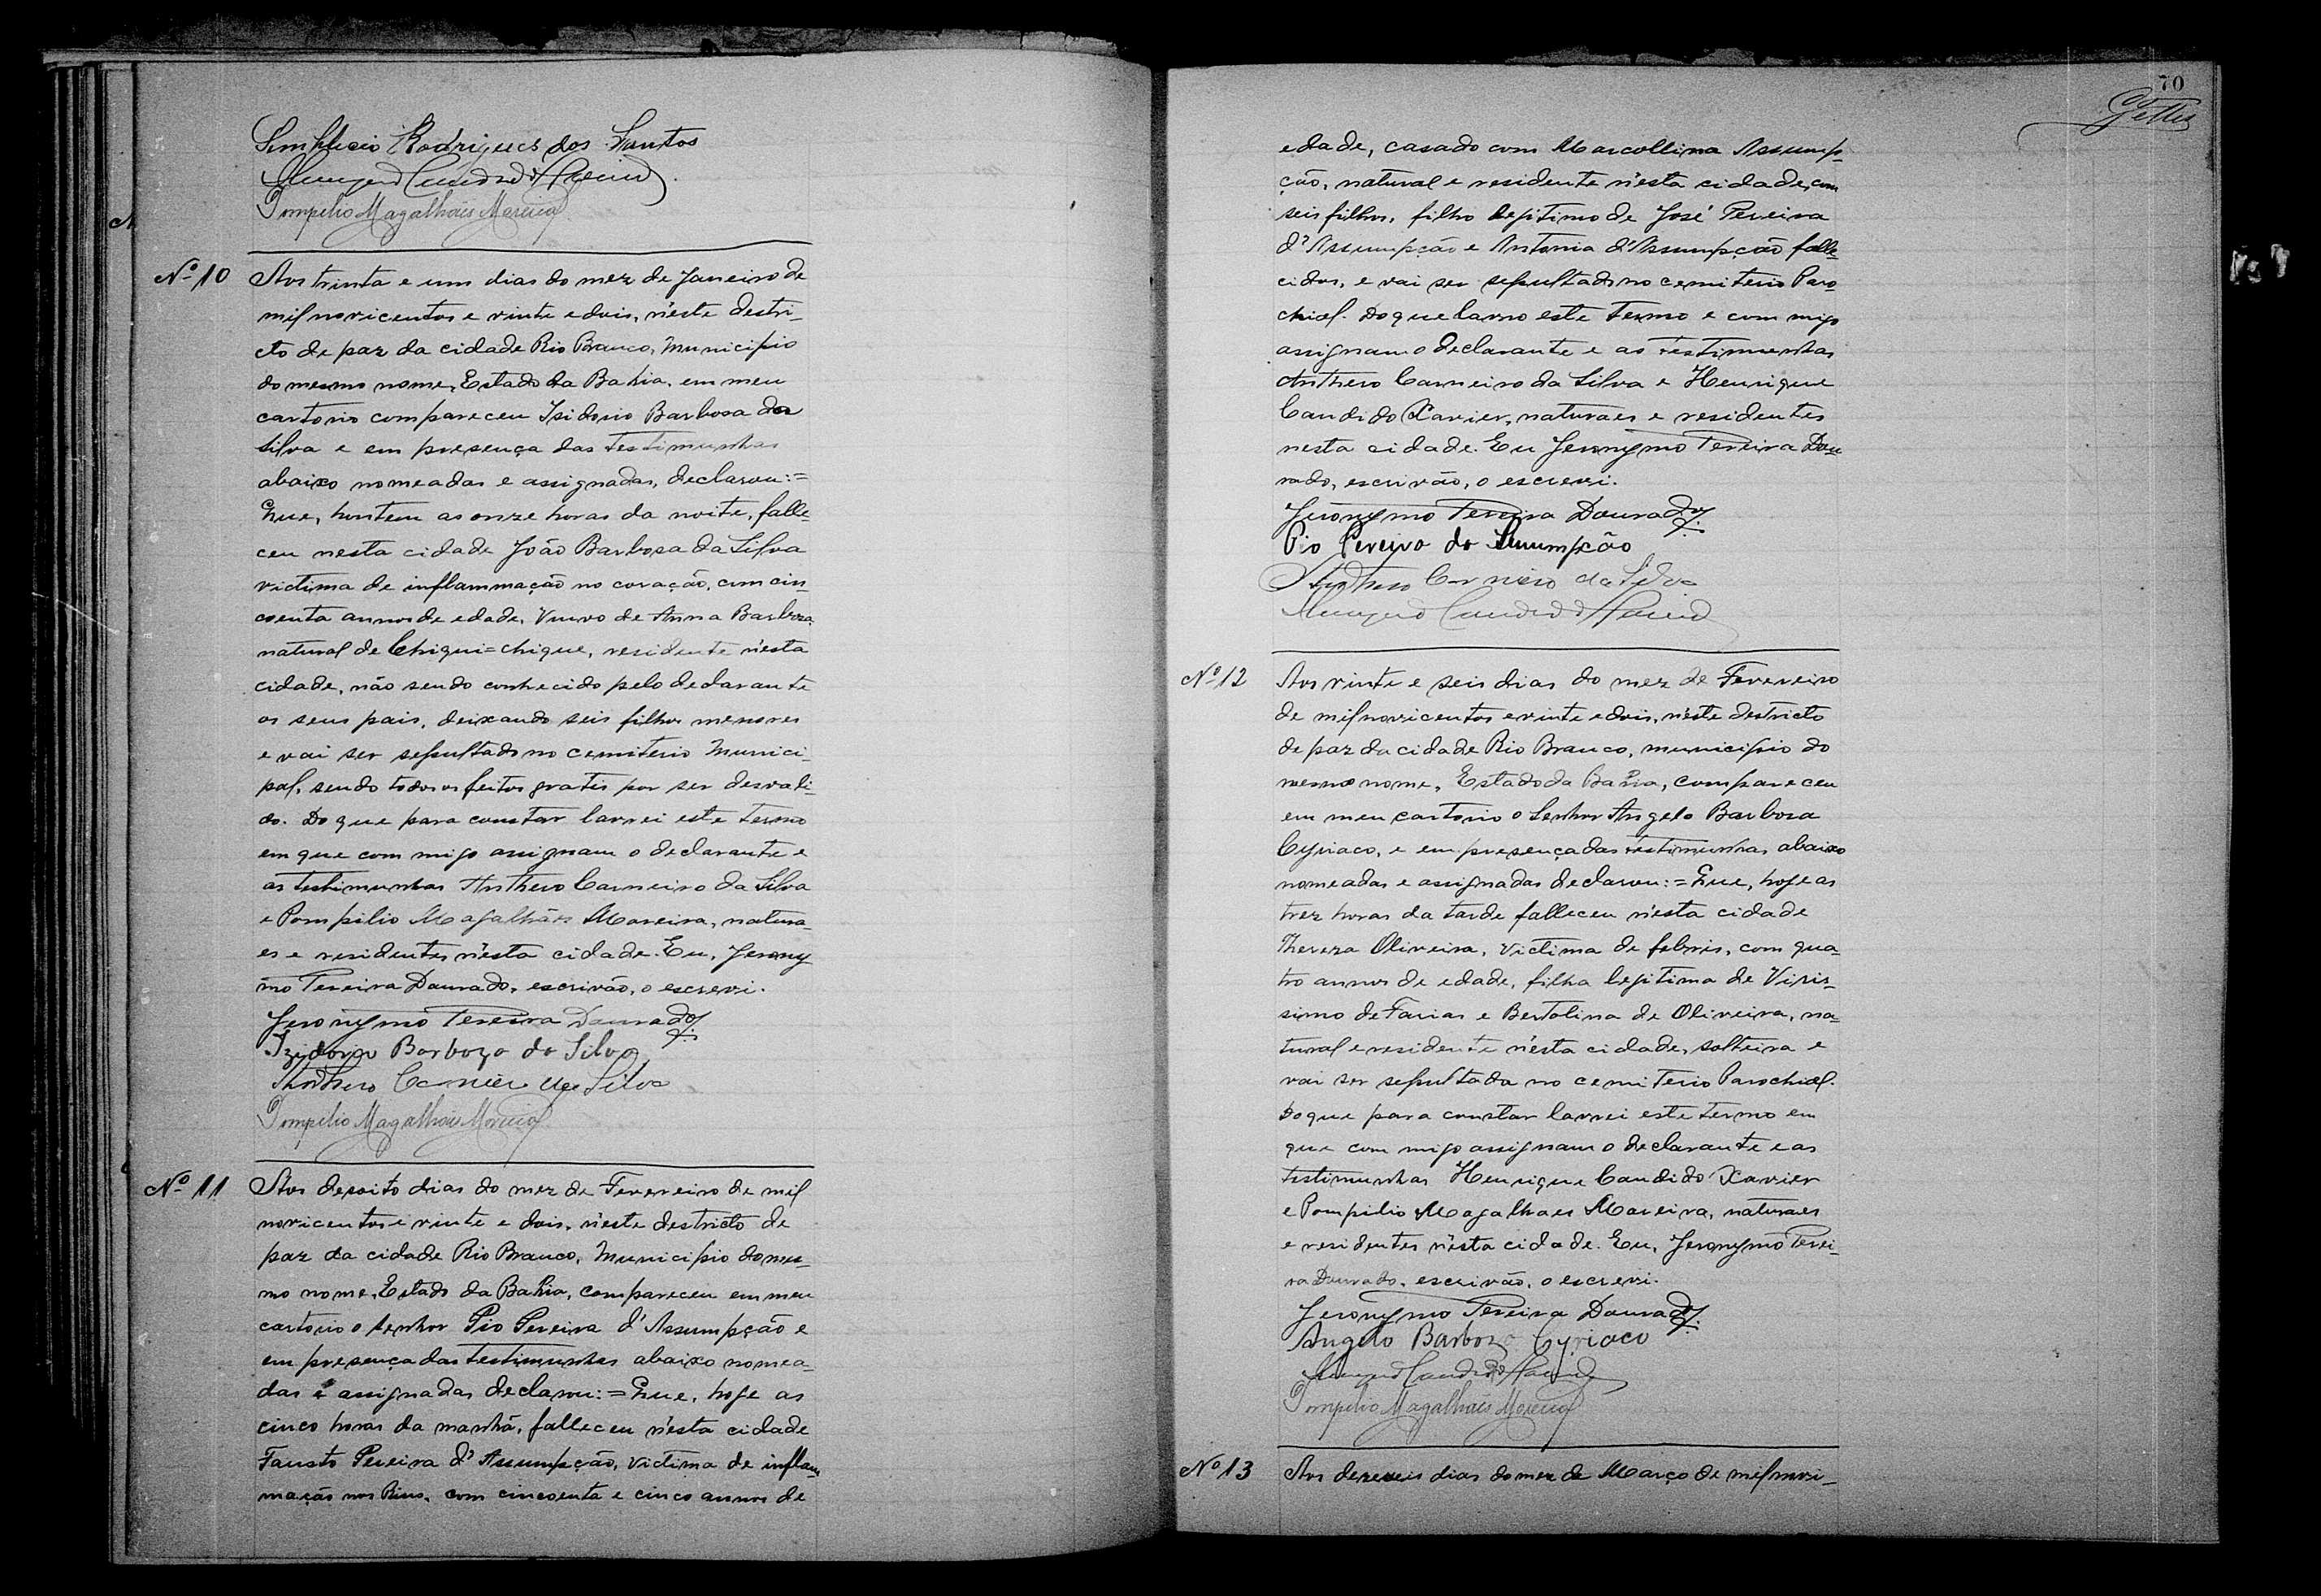 Simplicio Rodrigues dos Santos
Pompilio Magalhães Moreira
Nº 10 Aos trinta e um dias do mez de Janeiro de
mil novicentos e vinte e dois, n'este destri-
cto de paz da cidade Rio Branco, Municipio
do mesmo nome, Estado da Bahia, em meu
cartorio compareceu Isidorio Barbosa da
Silva e em presença das testimunhas
abaixo nomeadas e assignadas, declarou:=
Que, hontem as onze horas da noite, falle-
ceu nesta cidade João Barbosa da Silva
victima de inflammação no coração, com cin-
coenta annos de edade, Viuvo de Anna Barboza
natural de Chiqui=chique, residente n'esta
cidade, não sendo conhecido pelo declarante
os seus pais, deixando seis filhos menores
e vai ser sepultado no cemiterio Munici-
pal, sendo todos os feitos gratis por ser desvali-
do. Do que para constar lavrei este termo
em que com migo assignam o declarante e
as testimunhas Anthero Carneiro da Silva
e Pompilio Magalhães Moreira, natura-
es e residentes n'esta cidade. Eu, Jerony
mo Pereira Dourado, escrivão, o escrevi.
Jeronymo Pereira Dourado
Izidorio Barbozo da Silva
Anthero Carneiro da Silva
Pompilio Magalhães Moreira
Nº 11 Aos desoito dias do mez de Fevereiro de mil
novicentos e vinte e dois, n'este destricto de
paz da cidade Rio Branco, Municipio do mes-
mo nome, Estado da Bahia, compareceu em meu
cartorio o senhor Pio Pereira d'Assumpção e
em presença das testimunhas abaixo nomea-
das e assignadas declarou:= Que, hoje as
cinco horas da manhã, falleceu n'esta cidade
Fausto Pereira d'Assumpção, victima de inflam-
mação nos Rins, com cincoenta e cinco annos de
70
edade, casado com Marcollina Assump-
ção, natural e residente n'esta cidade, com
seis filhos, filho legitimo de José Pereira
d'Assumpção e Antonia d'Assumpção falle-
cidos, e vai ser sepultado no cemiterio Paro
chial. Do que lavro este termo e com migo
assignam o declarante e as testimunhas
Anthero Carneiro da Silva e Henrique
Candido Xavier, naturaes e residentes
nesta cidade. Eu Jeronymo Pereira Dou
rado, escrivão, o escrevi.
Jeronymo Pereira Dourado
Pio Pereira da Assumpção
Anthero Carneiro da Silva
Nº 12 Aos vinte e seis dias do mez de Fevereiro
de mil novicentos e vinte e dois, n'este destricto
de paz da cidade Rio Branco, municipio do
mesmo nome, Estado da Bahia, compareceu
em meu cartorio o Senhor Angelo Barbosa
Cyriaco, e em presença das testimunhas abaixo
nomeadas e assignadas declarou:= Que, hoje as
trez horas da tarde falleceu n'esta cidade
Thereza Oliveira, victima de febris, com qua-
tro annos de edade, filha legitima de Viris-
simo de Farias e Bertolina de Oliveira, na-
tural e residente n'esta cidade, solteira e
vai ser sepultada no cemiterio Parochial.
Do que para constar lavrei este termo em
que com migo assignam o declarante e as
testimunhas Henrique Candido Xavier
e Pompilio Magalhaes Moreira, naturaes
e residentes n'esta cidade. Eu, Jeronymo Perei-
ra Dourado, escrivão, o escrevi.
Jeronymo Pereira Dourado
Angelo Barbozo Cyriaco
Pompilio Magalhães Moreira
Nº 13 Aos dezeseis dias do mez de Março de mil novi-